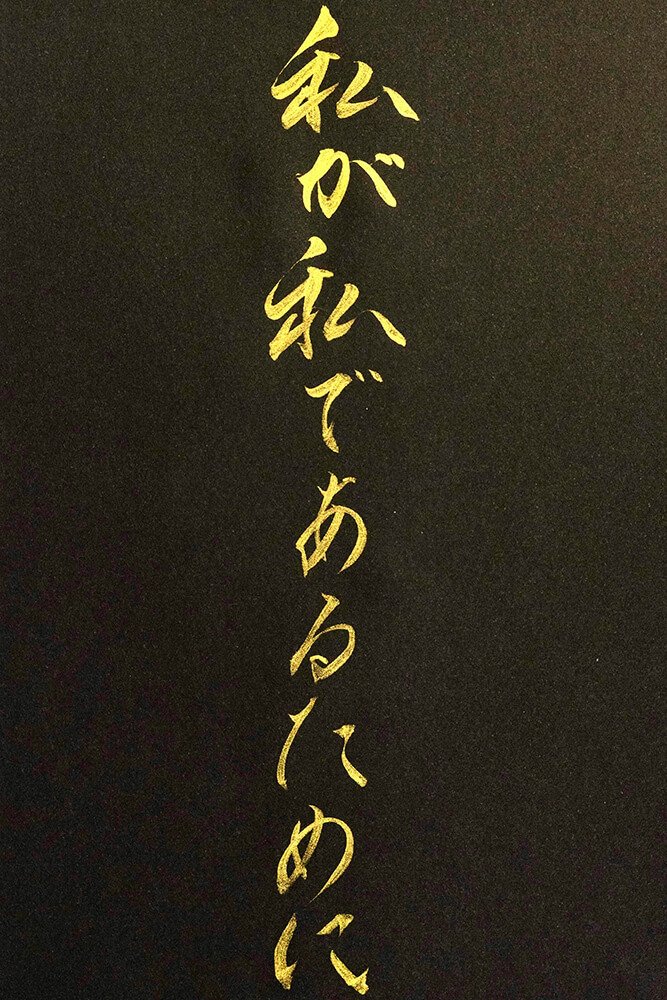 私が私であるために